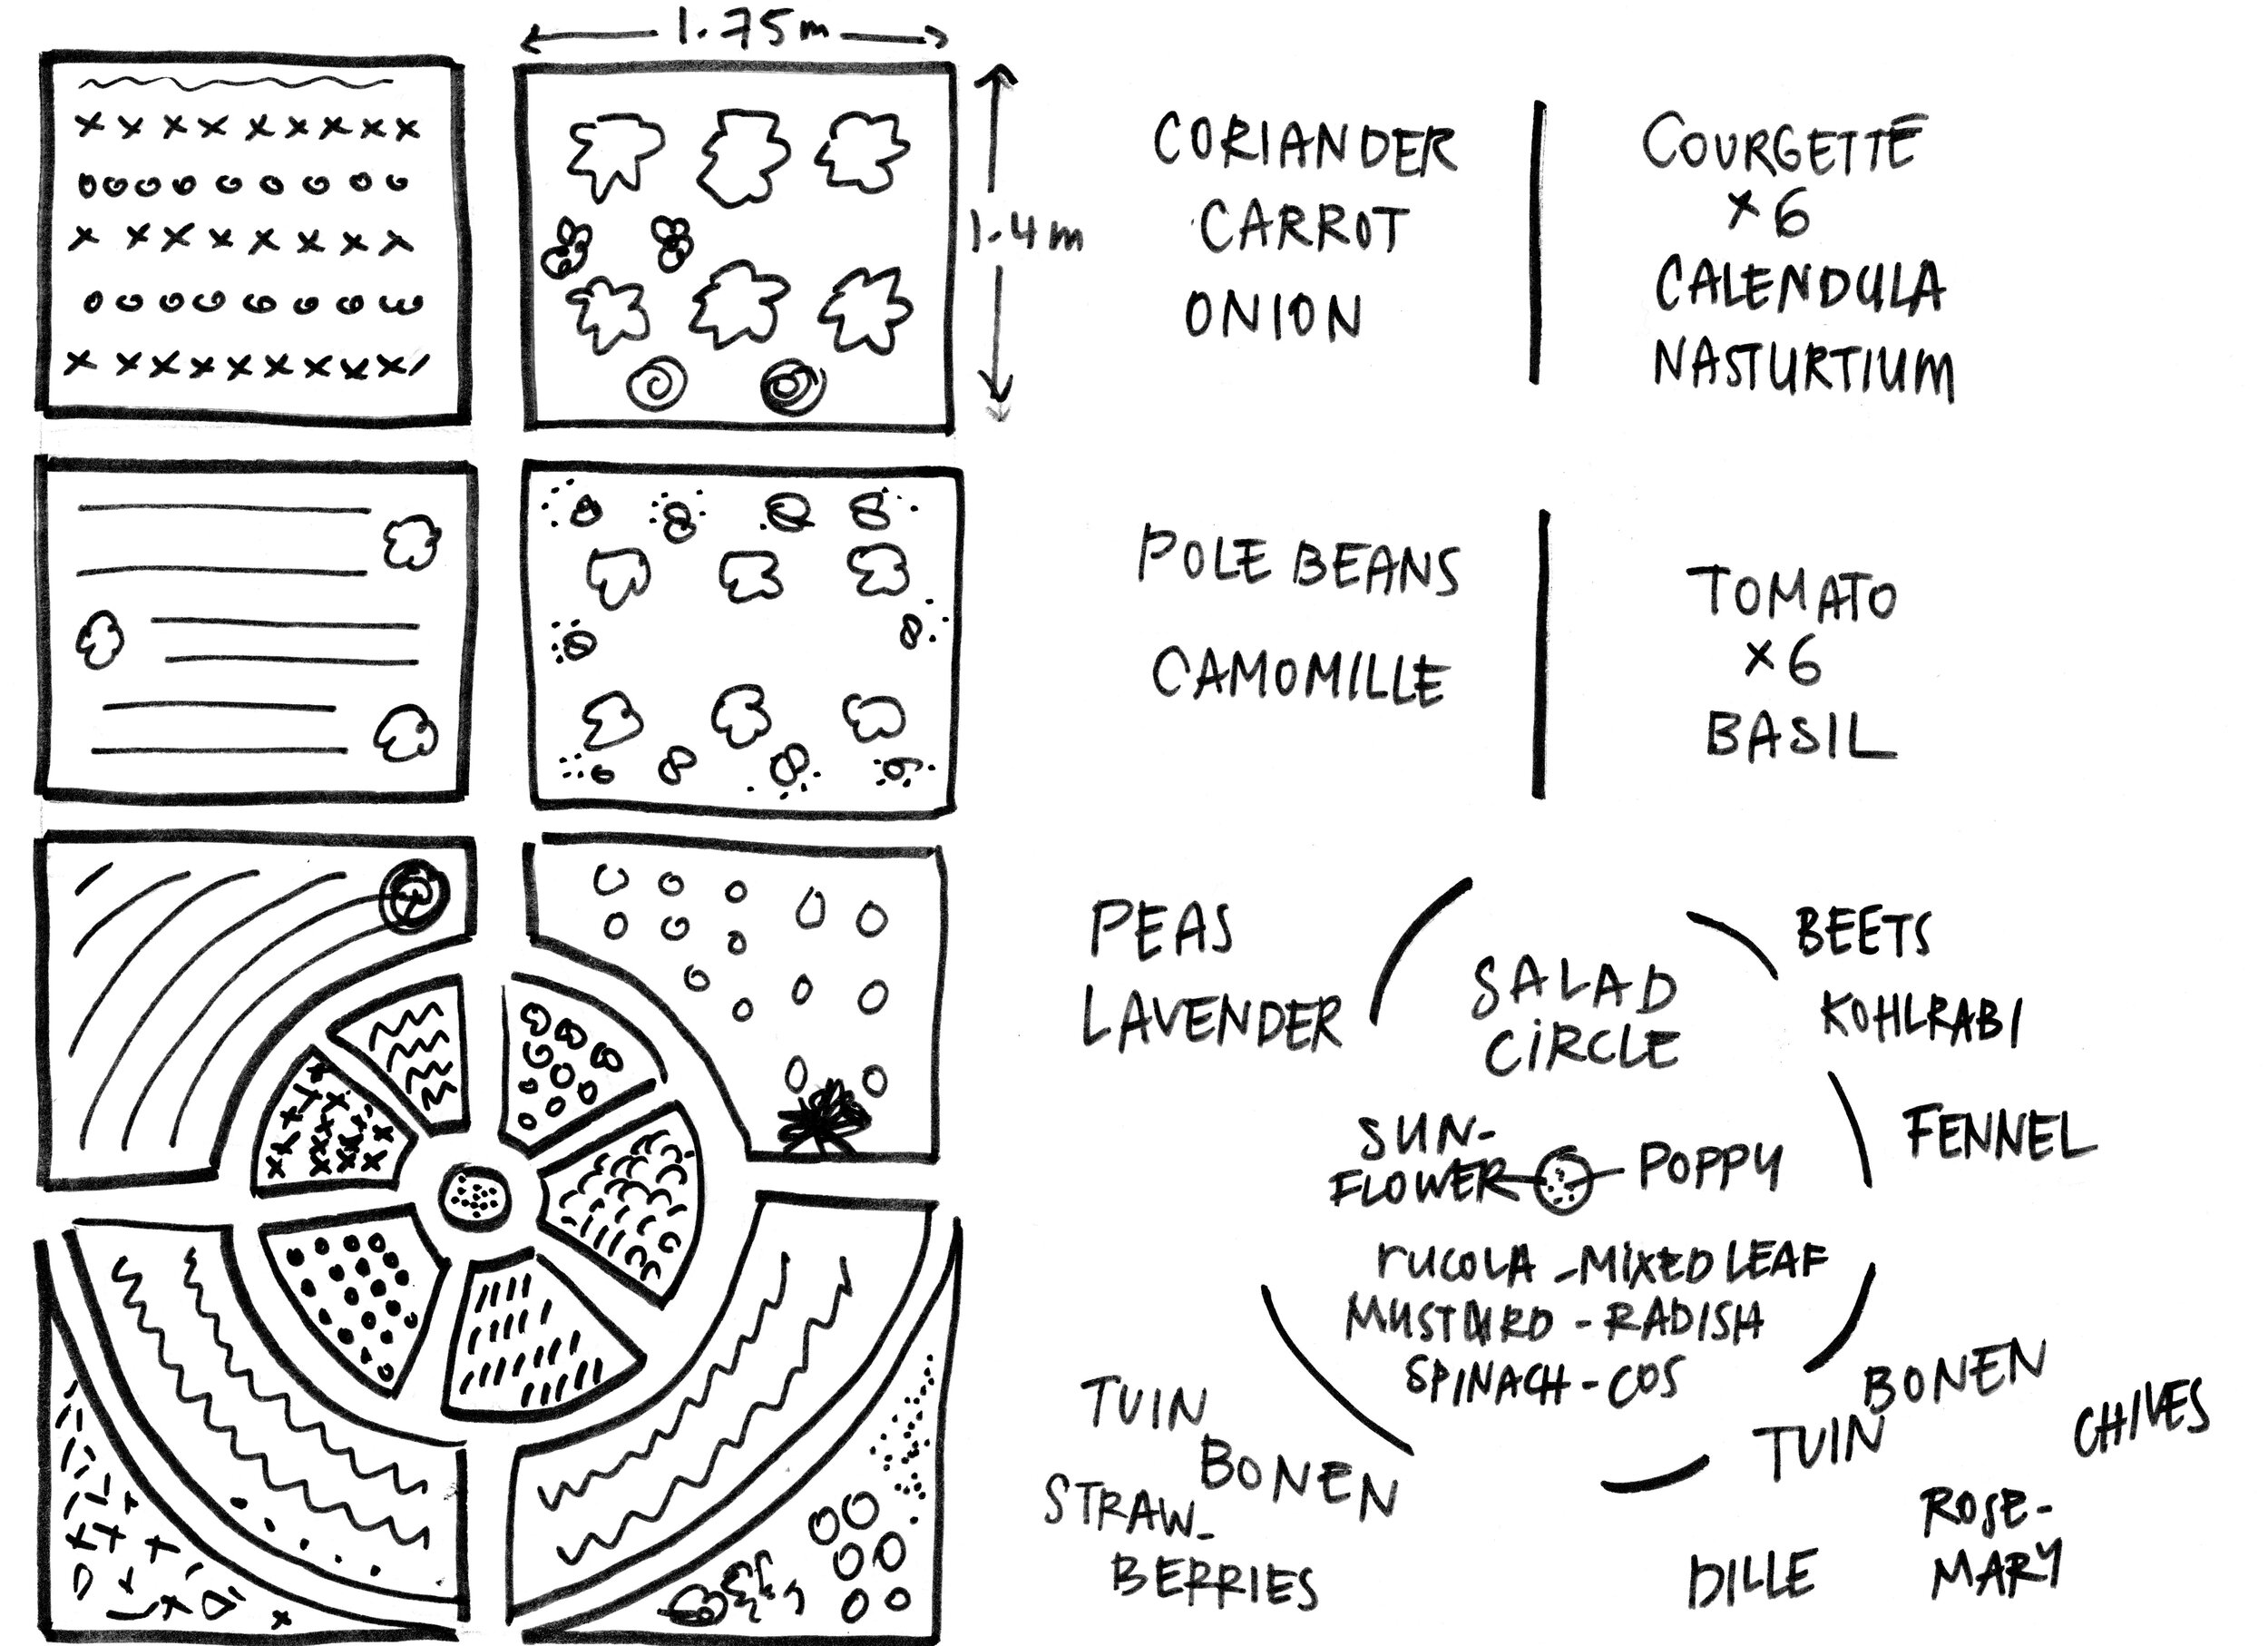 1.75m
1.4m
CORIANDER
CARROT
ONION
COURGETTE
x6
CALENDULA
NASTURTIUM
POLE BEANS
CAMOMILLE
TOMATO
x6
BASIL
PEAS
LAVENDER
SALAD
CIRCLE
BEETS
KOHLRABI
FENNEL
SUN-
FLOWER
POPPY
rUCOLA - MIXED LEAF
MUSTURD - RADISH
SPINACH - COS
TUIN
BONEN
STRAW-
BERRIES
TUIN
BONEN
CHIVES
DILLE
ROSE-
MARY